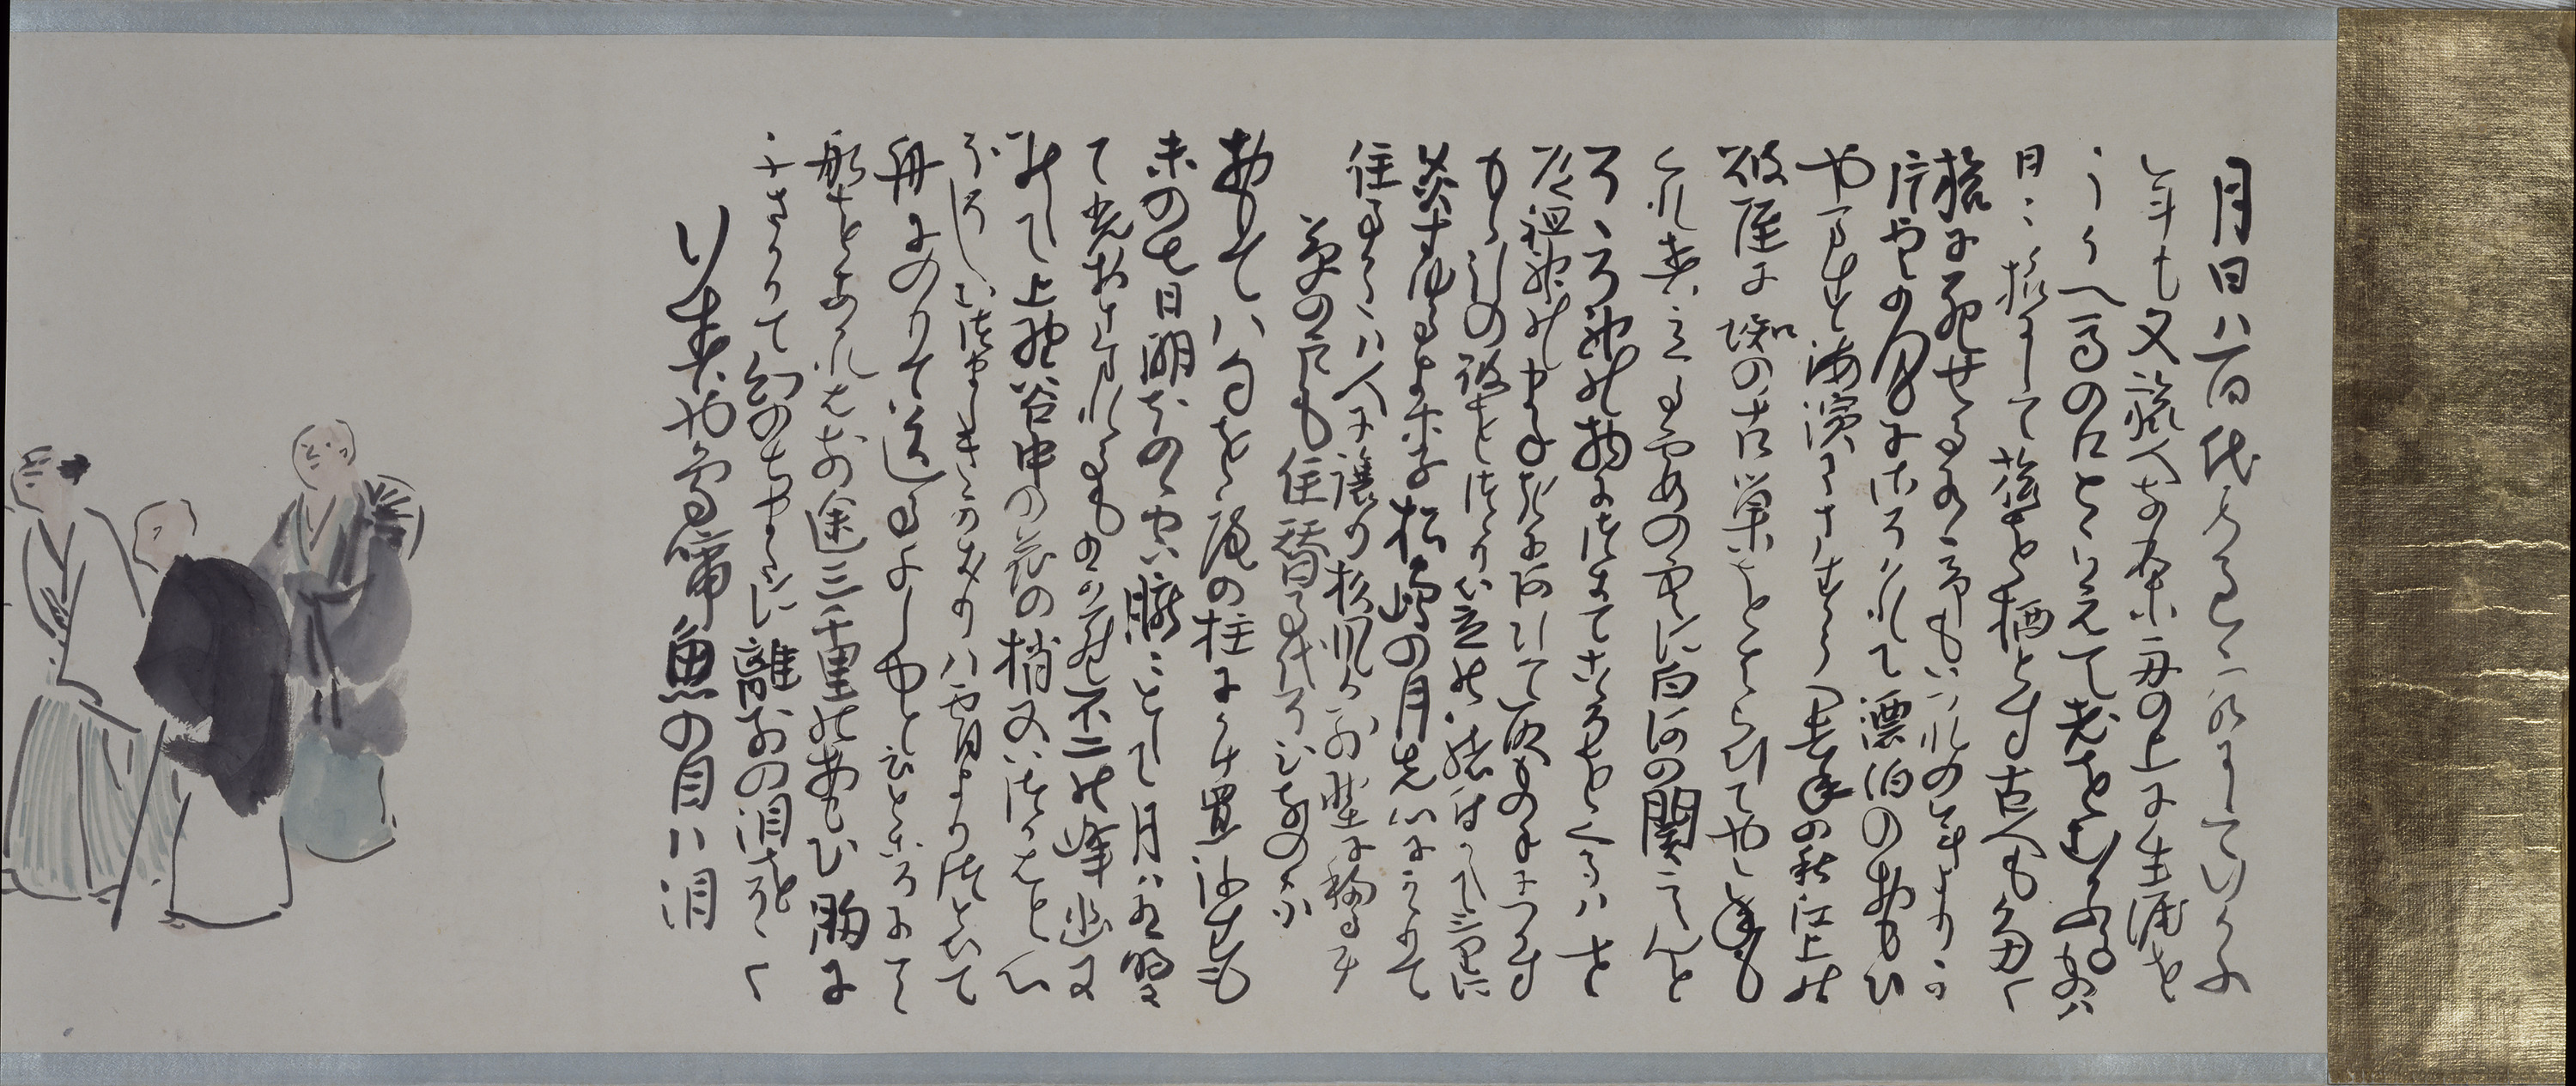 月日ハ百代の過客にして行かふ
年も又旅人なり舟の上に生涯を
うかへ馬の口とらえて老をむかふる物ハ
日々旅にして旅を栖とす古人も多く
旅に死せるあり予もいつれの年よりか
片雲の風にさそハれて漂泊のおもひ
やます海濱にさすらへ去年の秋江上の
破屋に蜘の古巣をはらひてやゝ年も
くれ春立る霞の空に白河の関こえんと
そゝろ神の物につきてこゝろをくるハせ
道祖神のまねきにあひて取もの手につかす
もゝ引の破をつゝり笠の緒付かえて三里に
灸すゆるより松嶋の月先心にかゝりて
住る方ハ人に譲り杉風か別墅に移るに
草の戸も住替る代そひなの家
面八句を庵の柱にかけ置弥生も
末の七日明ほのゝ空朧々として月ハ有明に
て光おさまれるものから不二の峯幽に
みえて上野谷中の花の梢又いつかはと心
ほそしむつましきかきりハ宵よりつとひて
舟にのりて送る千しゆと云ところにて
船をあかれは前途三千里のおもひ胸に
ふさかりて幻のちまたに離別の泪をそゝく
行春や鳥啼魚の目ハ泪